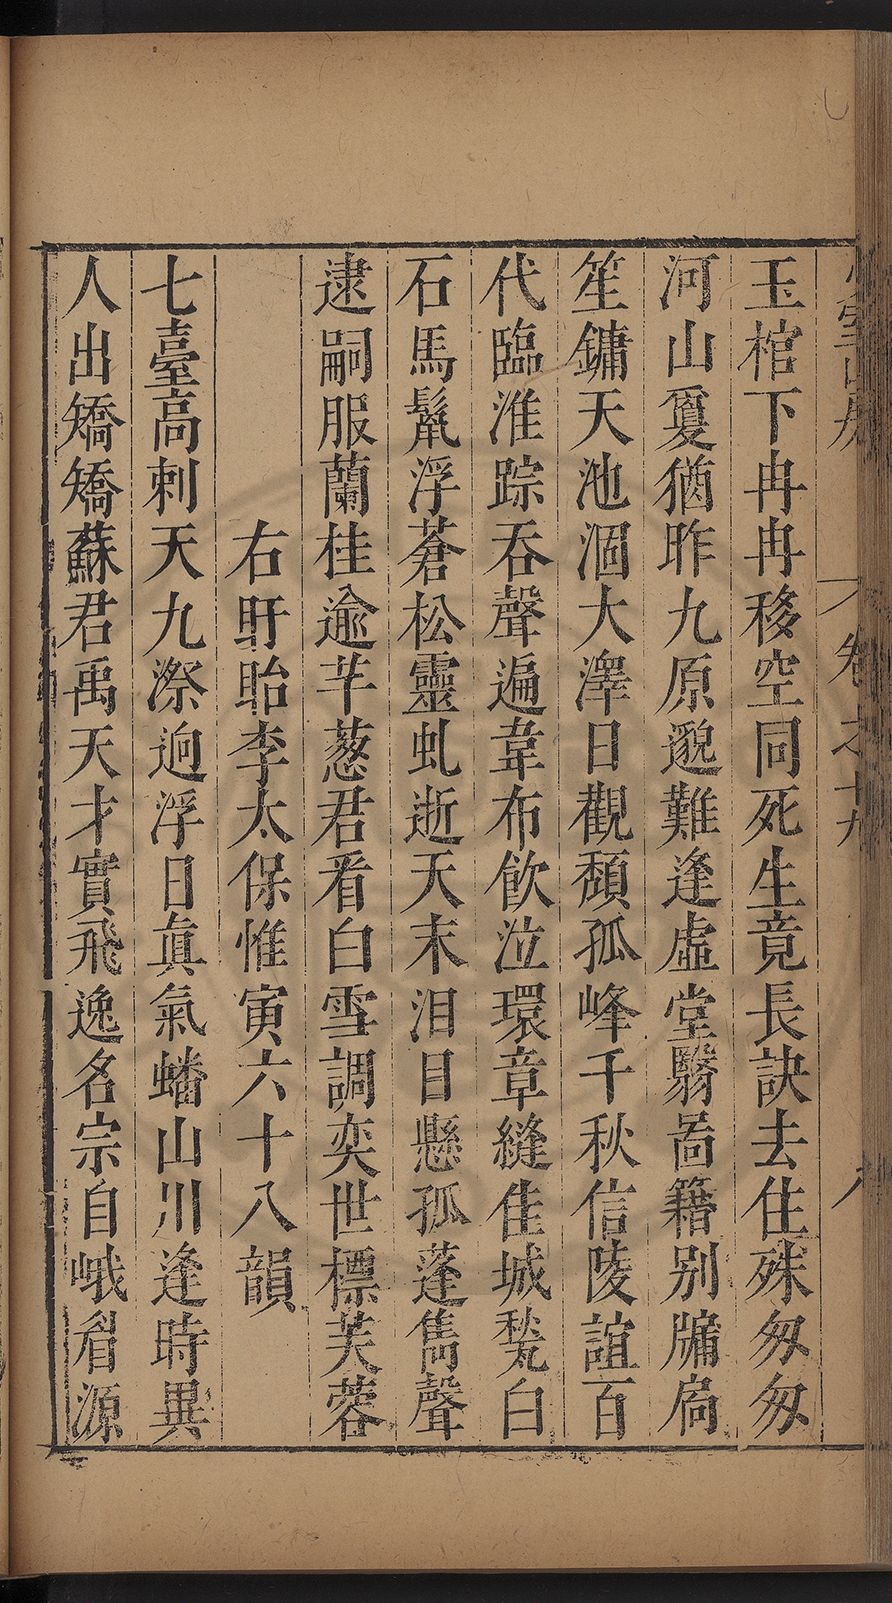 卷之十九
八
玉棺下冉冉移空同死生竟長訣去住殊匆匆
河山夐猶昨九原邈難逢虛堂翳啚籍别牖扃
笙鏞天池涸大澤日觀頽孤峰千秋信陵誼百
代臨淮踪吞聲遍韋布飲泣環章縫佳城甃白
石馬鬣浮蒼松靈虬逝天末泪目懸孤蓬雋聲
逮嗣服蘭桂逾芊葱君看白雪調奕世標芙蓉
右盱眙李太保惟寅六十八韻
七臺高刺天九漈逈浮日眞氣蟠山川逢時異
人出矯矯蘇君禹天才實飛逸名宗自峨眉源